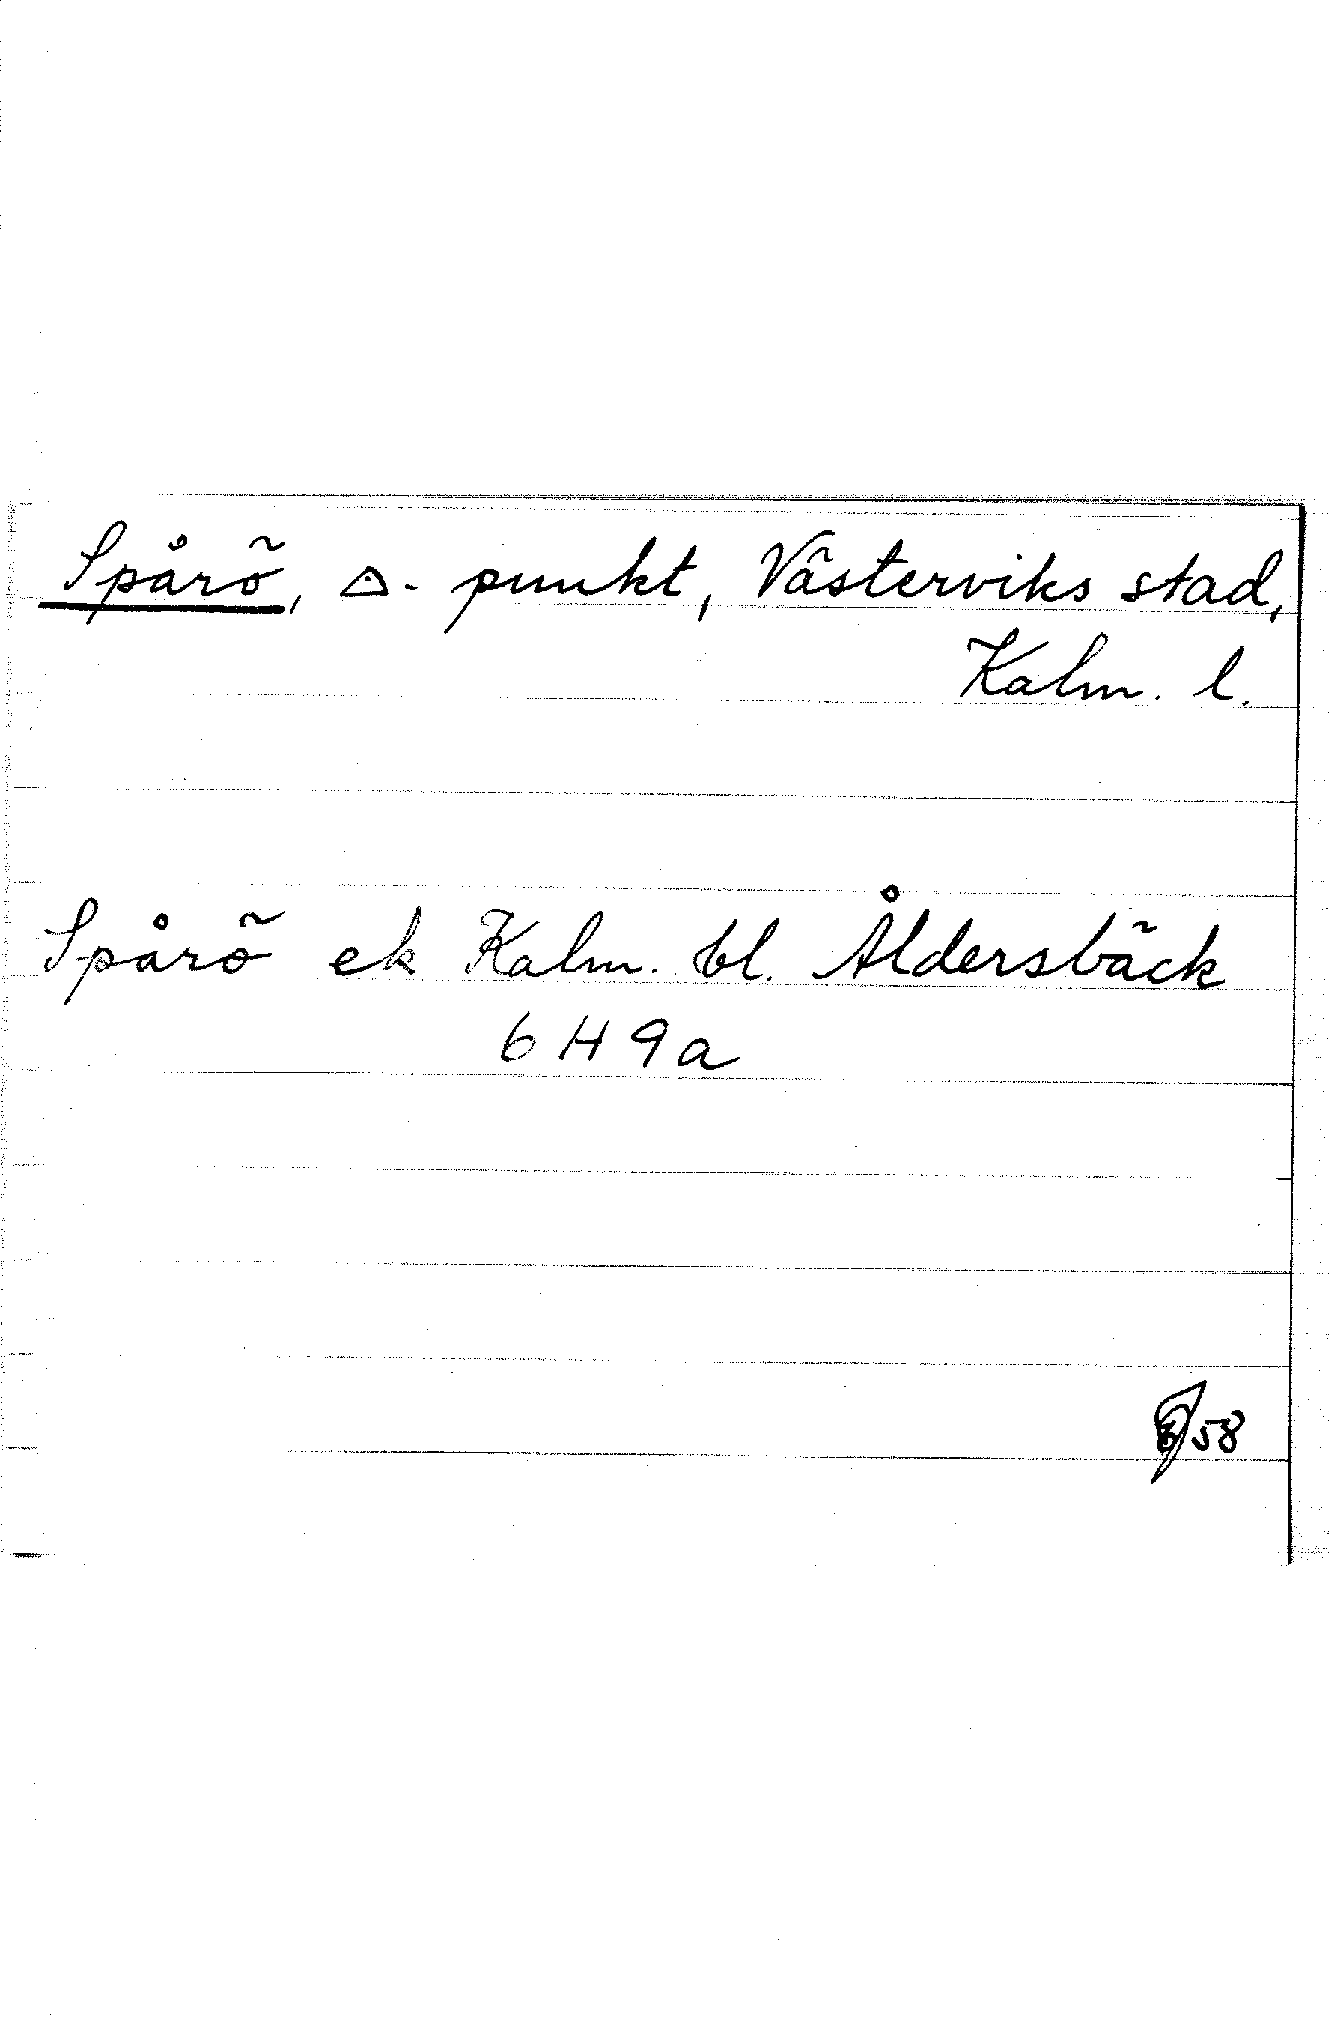 Spårö, △-punkt, Västerviks stad,
Kalm. l.
Spårö ek Kalm. bl. Åldersbäck
6 H 9a
58